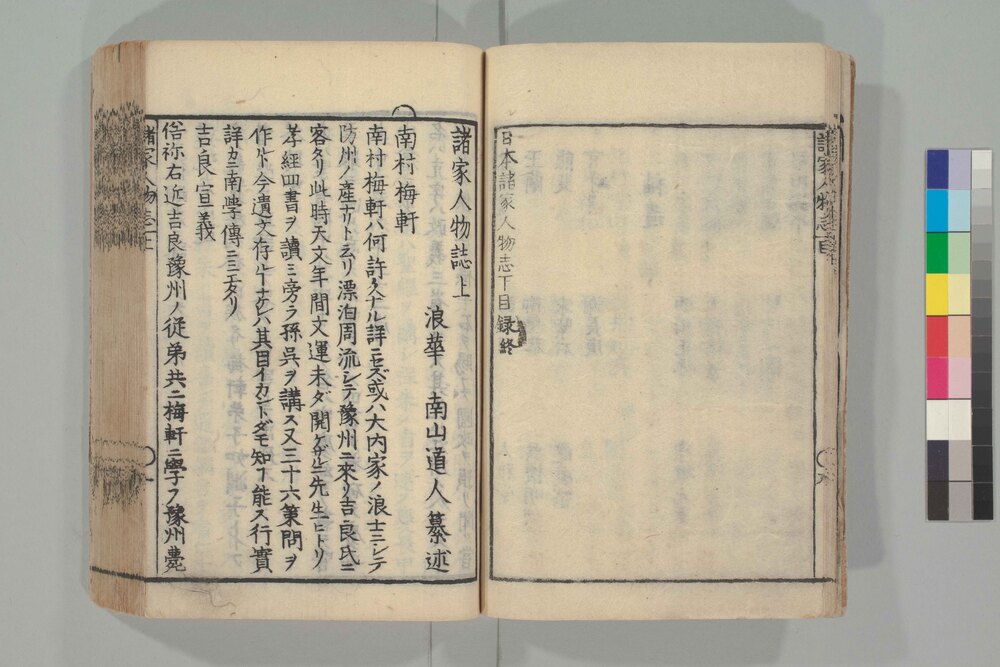 日本諸家人物志下目録終
諸家人物誌上
浪華 南山道人纂述
南村梅軒
南村梅軒ハ何許ノ人ナル詳ニセズ或ハ大内家ノ浪士ニシテ
防州ノ産ナリト云リ漂泊周流シテ豫州ニ來リ吉良氏ニ
客タリ此時天文年間文運未ダ開ケザルニ先生ヒトリ
孝經四書ヲ讀ミ旁ラ孫呉ヲ講ス又三十六策問ヲ
作ルト今遺文存ルナケレバ其目イカントダモ知ヿ能ス行實
詳カニ南學傳ニミエタリ
吉良宣義
俗称右近吉良豫州ノ從弟共ニ梅軒ニ學フ豫州薨